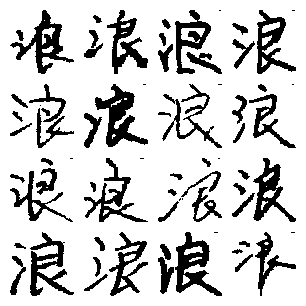 浪浪浪浪
浪浪浪浪
浪浪浪浪
浪浪浪浪